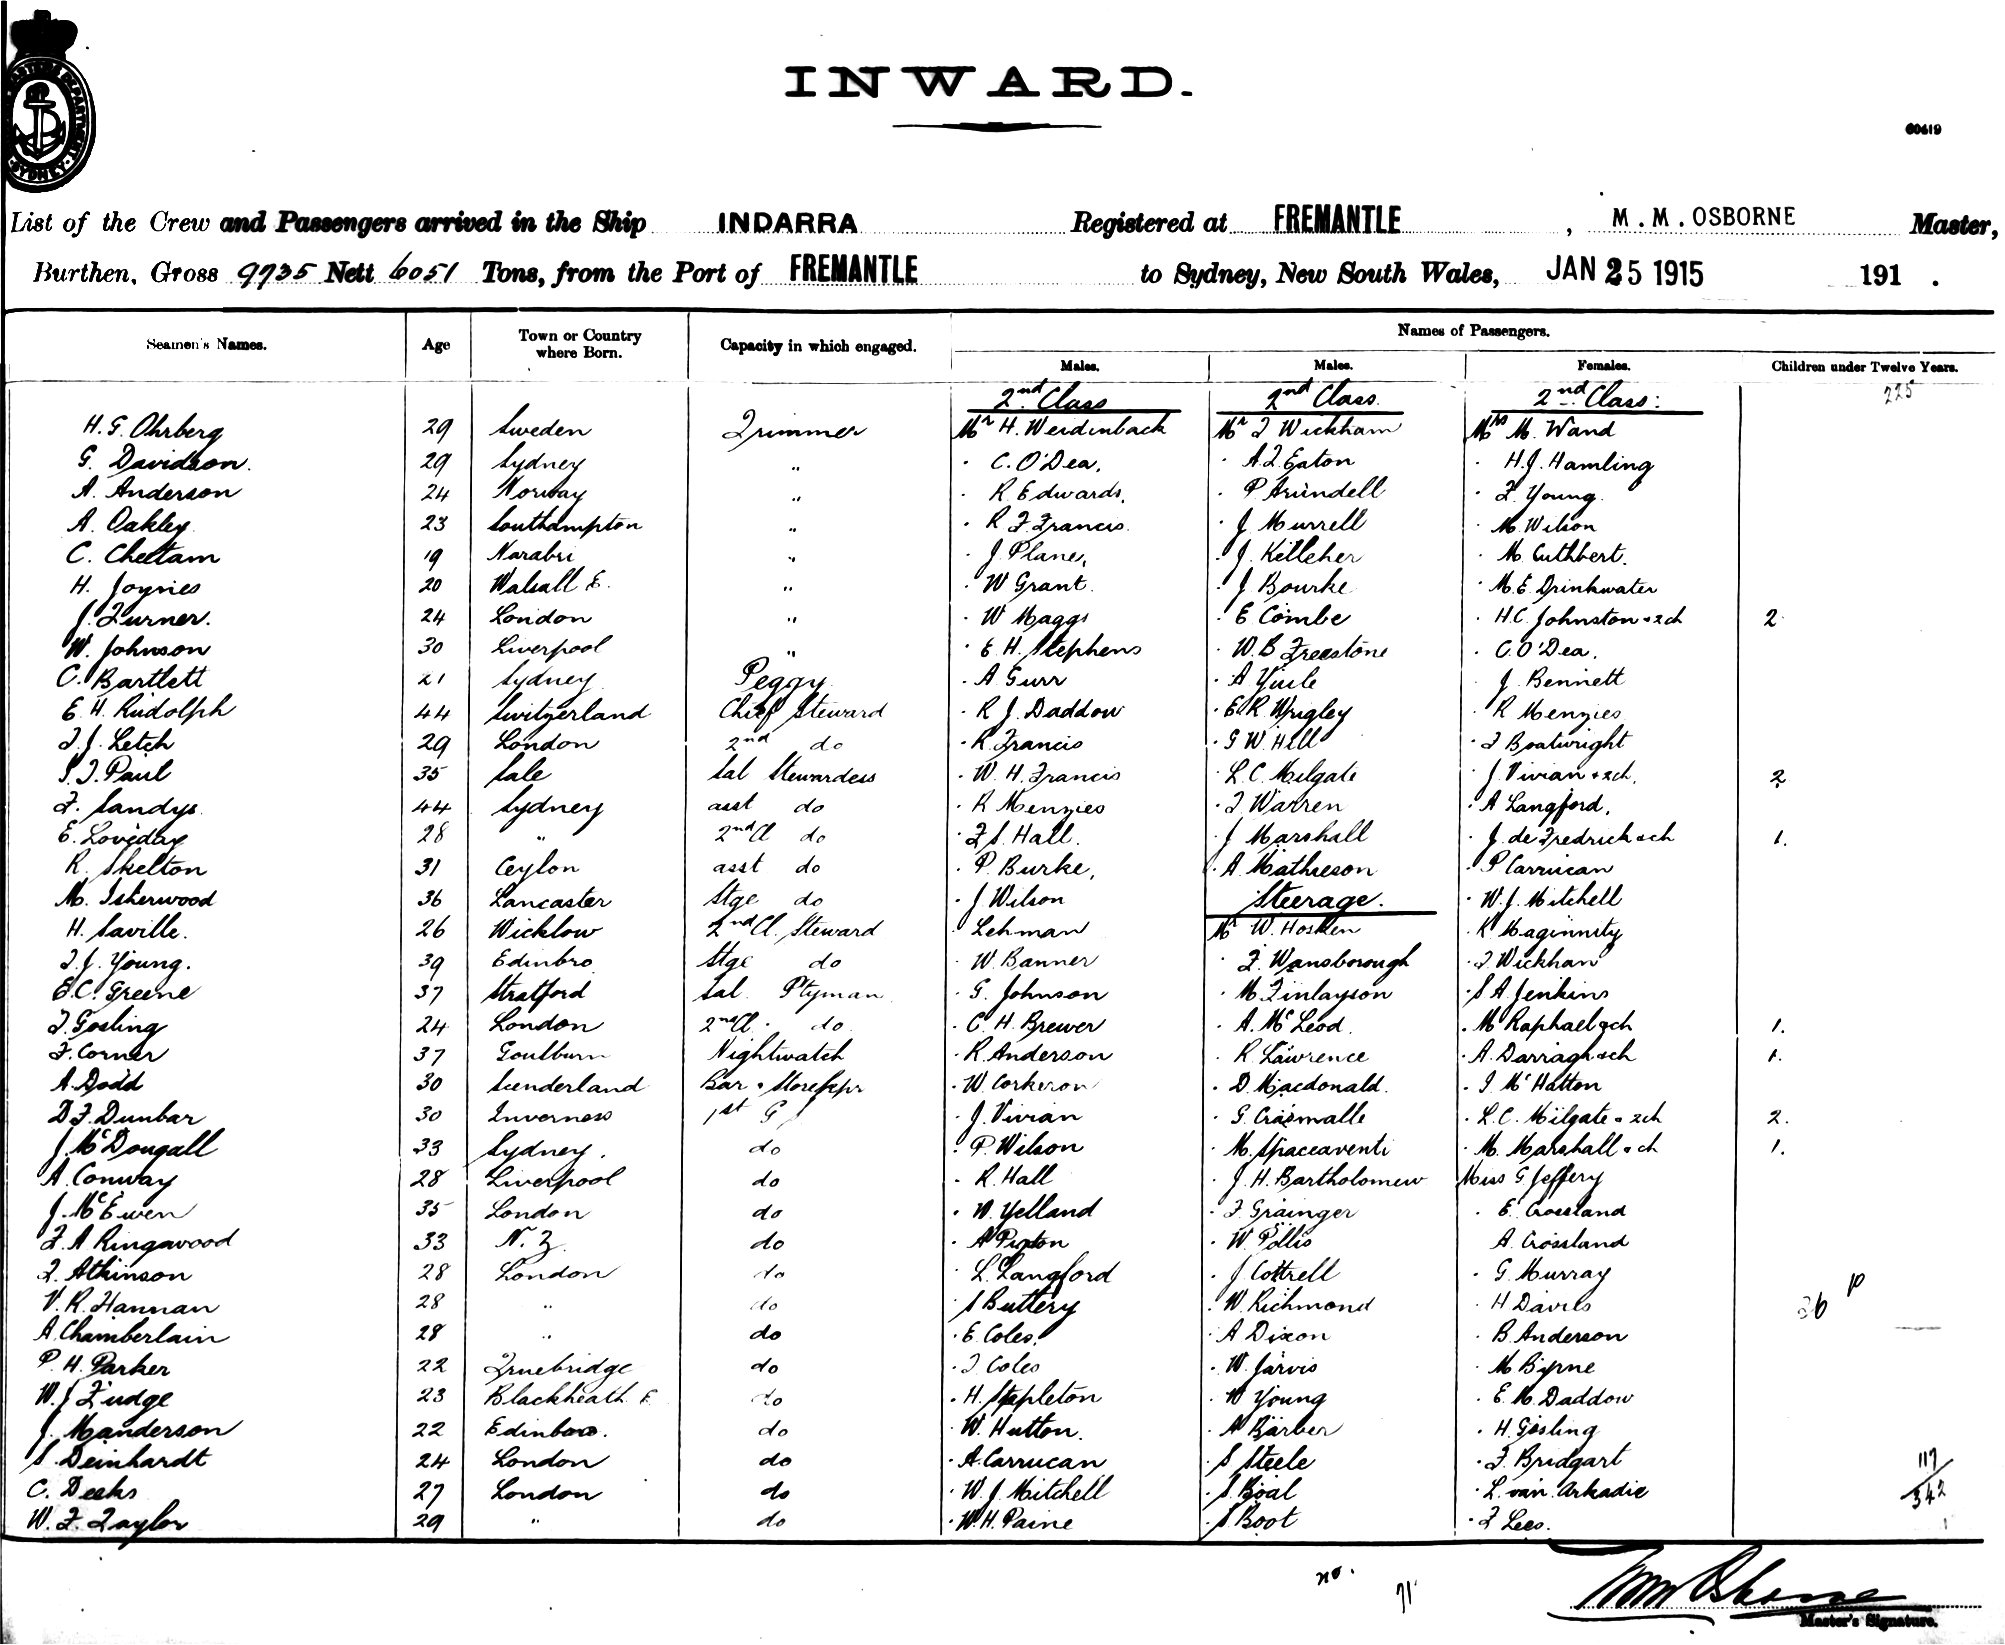 INWARD.
60619
CUSTOMS DEPARTMENT SYDNEY
List of the Crew and Passengers arrived in the Ship INDARRA Registered at FREMANTLE , M. M. OSBORNE Master,
Burthen, Gross 9735 Nett 6051 Tons, from the Port of FREMANTLE to Sydney, New South Wales, JAN 25 1915 191 .
Seamen's Names. Age Town or Country where Born. Capacity in which engaged. Names of Passengers.
Males. Males. Females. Children under Twelve Years.
2nd Class 2nd Class. 2nd Class: 225
H. G. Ohrberg 29 Sweden Trimmer Mr H. Weidinback Mr T Wickham Mrs M. Wand
G. Davidson. 29 Sydney " C. O'Dea, A.T. Eaton H.J. Hamling
A. Anderson 24 Norway " R Edwards, P Arundell F Young.
A. Oakley. 23 Southampton " R F Francis. J Murrell M. Wilson
C. Cheetam 19 Narabri " J. Plane, J. Killeher M. Cuthbert.
H. Joynes 20 Walsall E. " W Grant. J Bourke M. E. Drinkwater
J. Turner. 24 London " W Maggs E Combe H.C. Johnston + 2ch 2
W. Johnson 30 Liverpool " E. H. Stephens W. B Freestone C. O'Dea.
C. Bartlett 21 Sydney Peggy. A Gurr A Yuile J. Bennett
E. H. Rudolph 44 Switzerland Chief Steward R J. Daddow E R Wrigley R Menzies
T. J. Letch 29 London 2nd do R. Francis G W. Hill T Boatwright
S. T. Paul 35 Sale Sal Stewardess W. H. Francis L. C. Milgate J. Vivian + 2ch. 2
F. Sandys. 44 Sydney asst do R Menzies T Warren A Langford.
E. Loveday 28 " 2nd Cl do F S. Hall. J Marshall J. de Fredrick + ch 1.
R. Skelton 31 Ceylon asst do P. Burke, A. Mathieson P Carrucan
M. Isherwood 36 Lancaster Stge do J Wilson Steerage. W. J. Mitchell
H. Saville. 26 Wicklow 2nd Cl. Steward Lehman Mr W. Hosken K Maginnity
T. J. Young. 39 Edinbro Stge do W. Banner F. Wansborough T Wickham
E. C. Greene 37 Stratford Sal. Ptyman G. Johnson M. Finlayson S A. Jenkins
T. Gosling 24 London 2nd Cl. do C. H. Brewer A. McLeod. M Raphael + ch 1.
F. Corner 37 Goulburn Nightwatch R. Anderson R. Lawrence A. Darragh + ch 1.
A. Dodd 30 Sunderland Bar + Storekpr W. Corkeron D. Macdonald. J McHatton
D. F. Dunbar 30 Inverness 1st G J. Vivian G. L. C. Milgate + 2ch 2.
J. McDougall 33 Sydney. do P. Wilson M. Spaceaventi M. Marshall + ch 1.
A. Conway 28 Liverpool do R. Hall J. H. Bartholomew Miss G Jeffery
J. McEwen 35 London do W. Yelland F. Grainger E. Crossland
F. A Ringwood 33 N. Z. do A Pigton W. Pollis A. Crossland
F. Atkinson 28 London do L. Langford J Cottrell G. Murray
V. R. Hannan 28 " do S Buttery W. Richmond H Davis 26 10
A. Chamberlain 28 " do E. Coles. A Dixon B. Anderson
P. H. Parker 22 Truebridge do T Coles W. Jarvis M Byrne
W. J Fudge 23 Blackheath E do H. Stapleton W Young E. M. Daddow
J. Manderson 22 Edinboro. do W. Hutton. A Barber H. Gosling
S. Deinhardt 24 London do A. Carrucan S Steele F. Bridgart 117
C. Deeks 27 London do W. J. Mitchell S. Boal L. van Arkadie 342
W. F. Taylor 29 " do W. H. Paine S Boot F Lees.
no. 71
MM Osborne
Master's Signature.